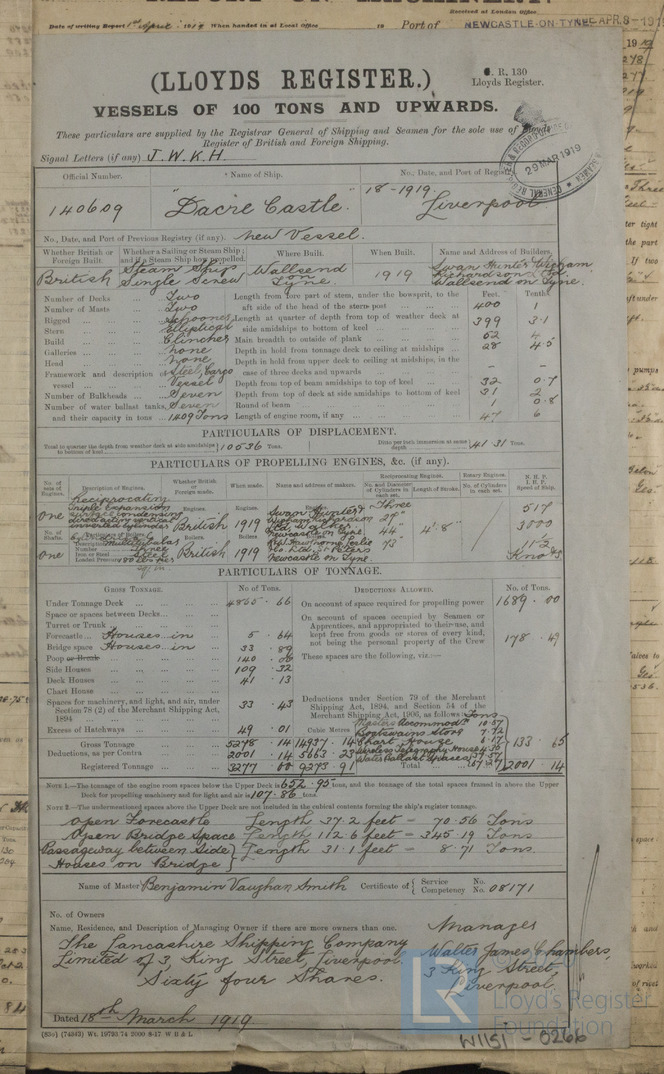 Date of writing Report 1st April 1919 When handed in at Local Office 19 Port of NEWCASTLE-ON-TYNE APR. 8 - 191
Received at London Office
(LLOYDS REGISTER.)
C. R. 130
Lloyds Register.
VESSELS OF 100 TONS AND UPWARDS.
These particulars are supplied by the Registrar General of Shipping and Seamen for the sole use of Lloyds
Register of British and Foreign Shipping.
29 MAR 1919
Signal Letters (if any) J. W. K. H.
Official Number. Name of Ship. No., Date, and Port of Registry
140609 "Dacre Castle." 18-1919. Liverpool
No., Date, and Port of Previous Registry (if any). New Vessel.
Whether British or Foreign Built. Whether a Sailing or Steam Ship; and if a Steam Ship how propelled. Where Built. When Built. Name and Address of Builders.
British Steam Ship Single Screw Wallsend on Tyne. 1919 Swan Hunter Wigham Richardson Ltd. Wallsend on Tyne.
Feet. Tenths.
Number of Decks Two
Number of Masts Two
Rigged Schooner
Stern Elliptical
Build Clincher
Galleries None
Head None
Framework and description of vessel Steel, Cargo Vessel
Number of Bulkheads Seven
Number of water ballast tanks, Seven
and their capacity in tons 1409 Tons
Length from fore part of stem, under the bowsprit, to the aft side of the head of the stern-post 400 1
Length at quarter of depth from top of weather deck at side amidships to bottom of keel 399 3.1
Main breadth to outside of plank 52 4
Depth in hold from tonnage deck to ceiling at midships 28 4.5
Depth in hold from upper deck to ceiling at midships, in the case of three decks and upwards - -
Depth from top of beam amidships to top of keel 32 0.7
Depth from top of deck at side amidships to bottom of keel 31 2
Round of beam 1 0.8
Length of engine room, if any 47 6
PARTICULARS OF DISPLACEMENT.
Total to quarter the depth from weather deck at side amidships to bottom of keel 10536 Tons.
Ditto per inch immersion at same depth 41.31 Tons.
PARTICULARS OF PROPELLING ENGINES, &c. (if any).
No. of sets of Engines. Description of Engines. Whether British or Foreign made. When made. Name and address of makers. Reciprocating Engines. No. and Diameter of Cylinders in each set. Length of Stroke. Rotary Engines. No. of Cylinders in each set. N.H.P. I.H.P. Speed of Ship.
One Reciprocating Triple Expansion surface condensing direct acting vertical inverted cylinder
Engines. British
Engines. 1919
Engines. Swan Hunter & Wigham Richardson Ltd. Walker Newcastle on Tyne.
Three 27" 44" 73" 4' 8"
517 3000 11½ Knots
No. of Shafts. Particulars of Boilers.
One Number Three Iron or Steel Steel
Boilers British
Boilers 1919
Boilers Newcastle on Tyne.
PARTICULARS OF TONNAGE.
GROSS TONNAGE. No. of Tons.
Under Tonnage Deck 4865 . 66
Space or spaces between Decks
Turret or Trunk
Forecastle Houses in 5 . 64
Bridge space Houses in 33 . 89
Poop or Break 140 . 06
Side Houses 109 . 32
Deck Houses 41 . 13
Chart House
Spaces for machinery, and light, and air, under Section 78 (2) of the Merchant Shipping Act, 1894 33 . 43
Excess of Hatchways 49 . 01
Cubic Metres
Gross Tonnage 5278 . 14 14937 . 14
Deductions, as per Contra 2001 . 14 5663 . 23
Registered Tonnage 3277 . 00 9273 . 91
DEDUCTIONS ALLOWED. No. of Tons.
On account of space required for propelling power 1689 . 00
On account of spaces occupied by Seamen or Apprentices, and appropriated to their use, and kept free from goods or stores of every kind, not being the personal property of the Crew 178 . 49
These spaces are the following, viz.:—
Deductions under Section 79 of the Merchant Shipping Act, 1894, and Section 54 of the Merchant Shipping Act, 1906, as follows Tons
Masters Accommodn 10.57
Boatswains Store 7.72
Chart House
Wireless Telegraphy House
Water Ballast Spaces
133 . 65
Total 2001 . 14
NOTE 1.—The tonnage of the engine room spaces below the Upper Deck is 652.95 tons, and the tonnage of the total spaces framed in above the Upper
Deck for propelling machinery and for light and air is 107.86 tons.
NOTE 2.—The undermentioned spaces above the Upper Deck are not included in the cubical contents forming the ship's register tonnage.
Open Forecastle Length 37.2 feet = 70.56 Tons
Open Bridge Space Length 112.6 feet = 345.19 Tons
Passageway between Side Houses on Bridge } Length 31.1 feet = 8.71 Tons.
Name of Master Benjamin Vaughan Smith Certificate of { Service No. Competency No. 08171
No. of Owners
Name, Residence, and Description of Managing Owner if there are more owners than one.
The Lancashire Shipping Company
Limited of 3, King Street, Liverpool.
Sixty four Shares.
Manager
Walter James Chambers,
3 King Street,
Liverpool,
Dated 18th March 1919.
(85o) (74343) Wt. 19793/74 2000 8-17 W B & L
LR
Lloyd's Register
Foundation
W1151-0266